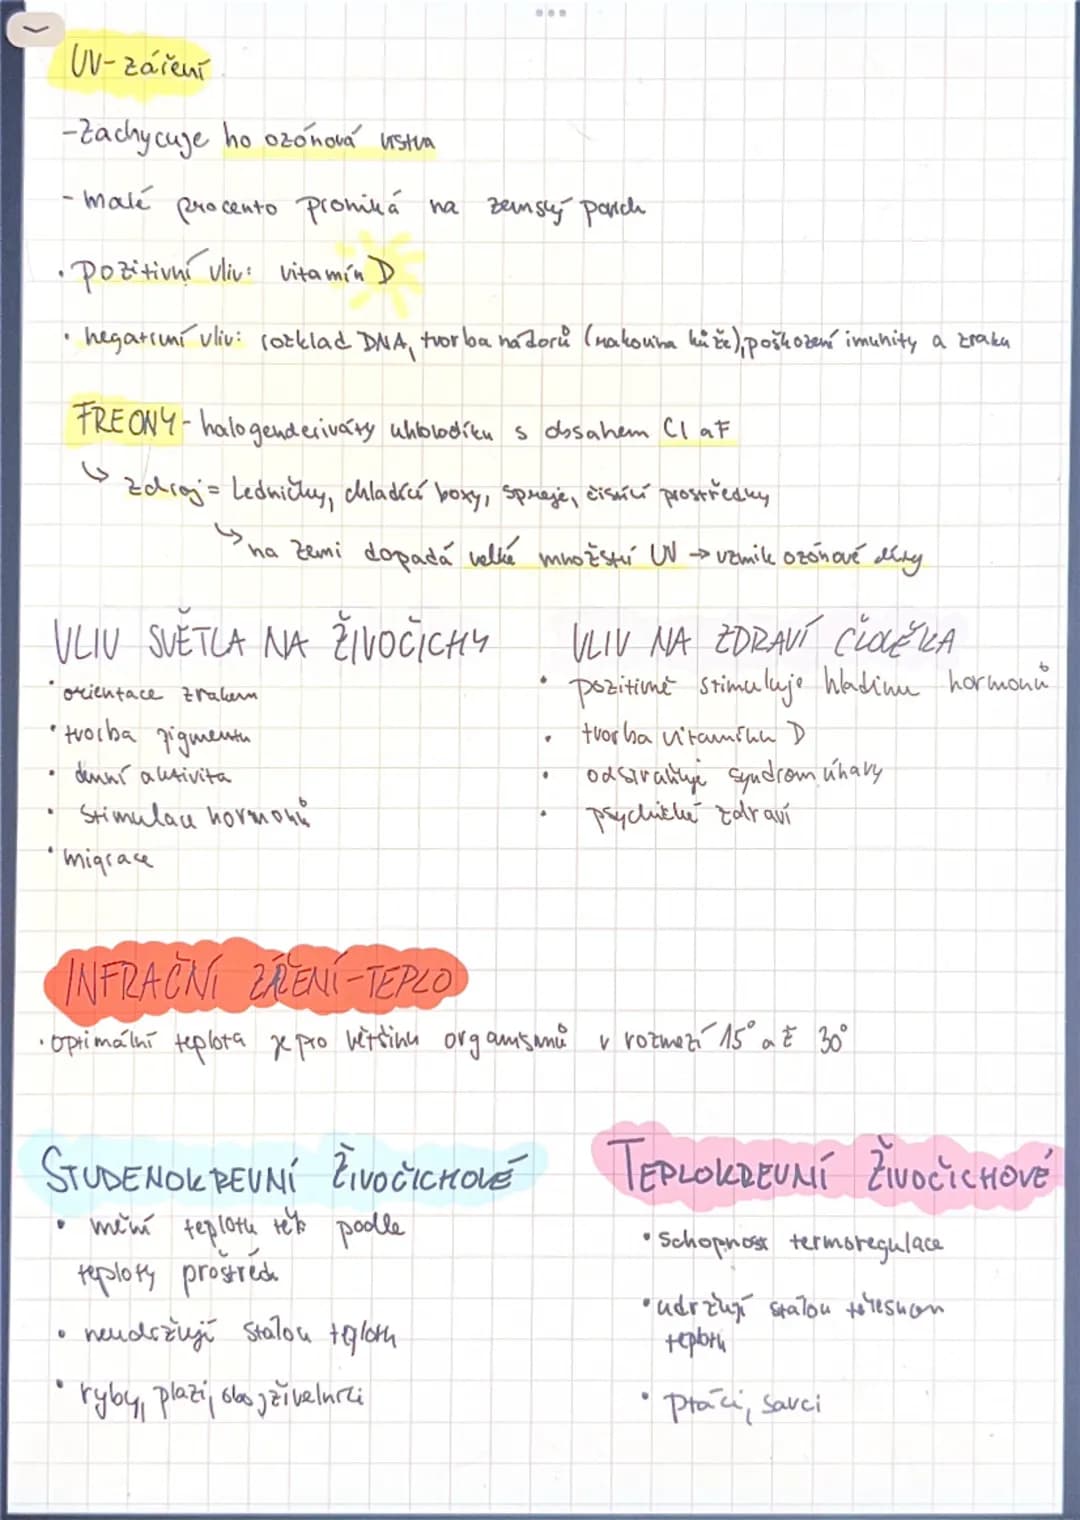 UV-záření
-Zachycuje ho ozónová vrstva
- malé procento proniká na zemský povrch
• Pozitivní vliv: vitamín D
• negativní vliv: rozklad DNA, tvorba nádorů (rakovina kůže), poškození imunity a zraku
FREONY - halogenderiváty uhlovodíku s obsahem Cl a F
↳ Zdroj = Ledničky, chladící boxy, spreje, čistící prostředky
↳ na Zemi dopadá velké množství UV → vznik ozónové díry
VLIV SVĚTLA NA ŽIVOČICHY
• orientace zrakem
• tvorba pigmentu
• denní aktivita
• Stimulace hormonů
• migrace
VLIV NA ZDRAVÍ ČLOVĚKA
• pozitivně stimuluje hladinu hormonů
• tvorba vitamínu D
• odstraňuje syndrom únavy
• psychické zdraví
INFRAČNÍ ZÁŘENÍ-TEPLO
• optimální teplota je pro většinu organismů v rozmezí 15° až 30°
STUDENOKREVNÍ ŽIVOČICHOVÉ
• mění teplotu těla podle
teploty prostředí
• neudržují stálou teplotu
• ryby, plazi, obojživelníci
TEPLOKREVNÍ ŽIVOČICHOVÉ
• Schopnost termoregulace
• udržují stálou tělesnou
teplotu
• Ptáci, savci